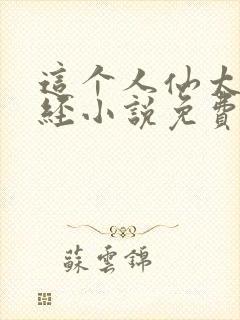 這个人仙太
經小說免費
蘇雲錦